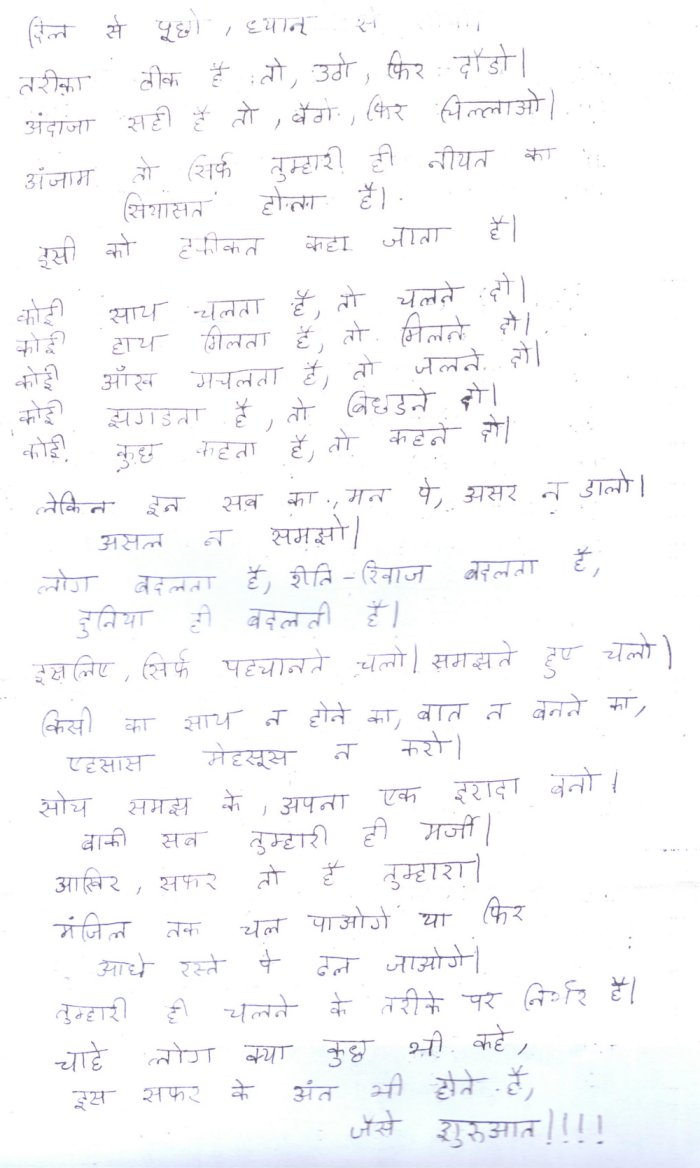 दिल से पूछो, ध्यान से
तरीक़ा ठीक है तो, उठो, फिर दौडो।
अंदाजा सही है तो, बैठो, फिर चिल्लाओ।
अंजाम तो सिर्फ तुम्हारी ही नीयत का
सियासत होता है।
इसी को हकीकत कहा जाता है।
कोई साथ चलता है, तो चलने दो।
कोई हाथ मिलता है, तो मिलने दो।
कोई आँख मचलता है, तो जलने दो।
कोई झगडता है, तो बिछडने दो।
कोई कुछ कहता है, तो कहने दो।
लेकिन इन सब का, मन पे, असर न डालो।
असल न समझो।
लोग बदलता है, रीति-रिवाज बदलता है,
दुनिया ही बदलती है।
इसलिए, सिर्फ पहचानते चलो। समझते हुए चलो।
किसी का साथ न होने का, बात न बनने का,
एहसास मेहसूस न करो।
सोच समझ के, अपना एक इरादा बनो।
बाकी सब तुम्हारी ही मर्जी।
आखिर, सफर तो है तुम्हारा।
मंजिल तक चल पाओगे या फिर
आधे रस्ते पे ढल जाओगे।
तुम्हारी ही चलने के तरीके पर निर्भर है।
चाहे लोग क्या कुछ भी कहे,
इस सफर के अंत भी होते है,
जैसे शुरुआत।!!!!